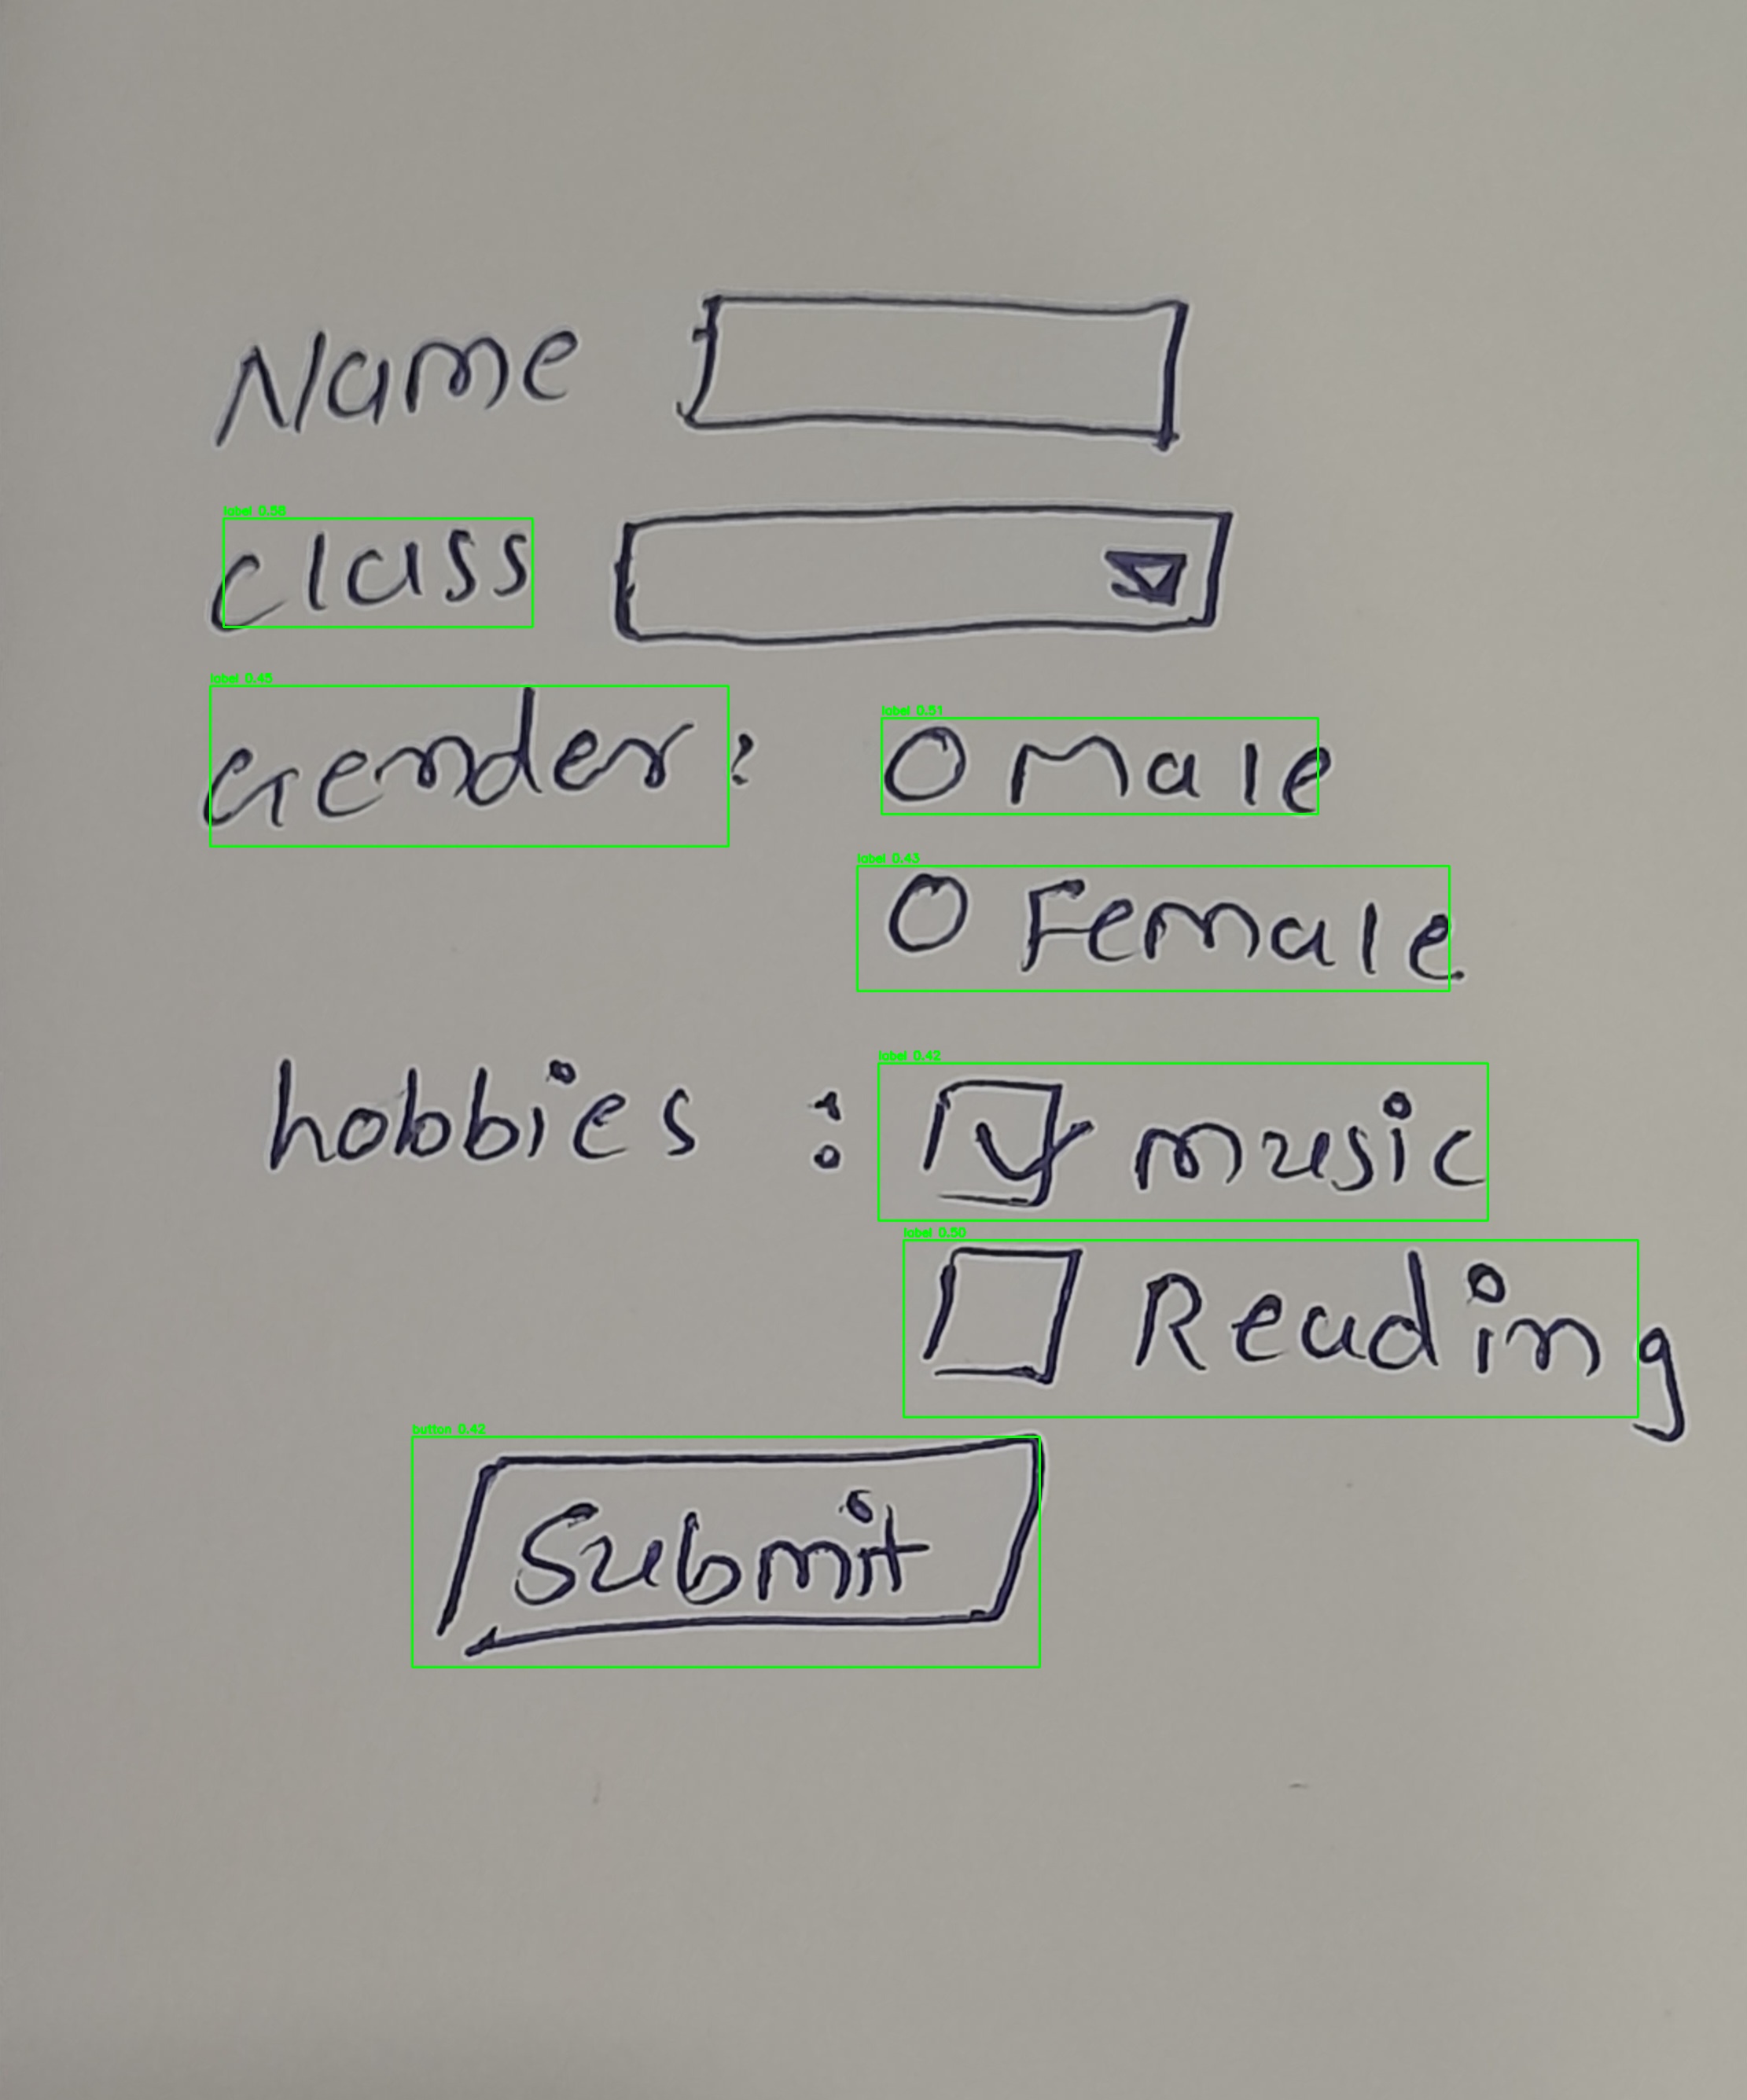 Name
label 0.58
class
label 0.45
Gender :
label 0.51
O Male
label 0.43
O Female
label 0.42
hobbies : music
label 0.50
Reading
button 0.42
Submit